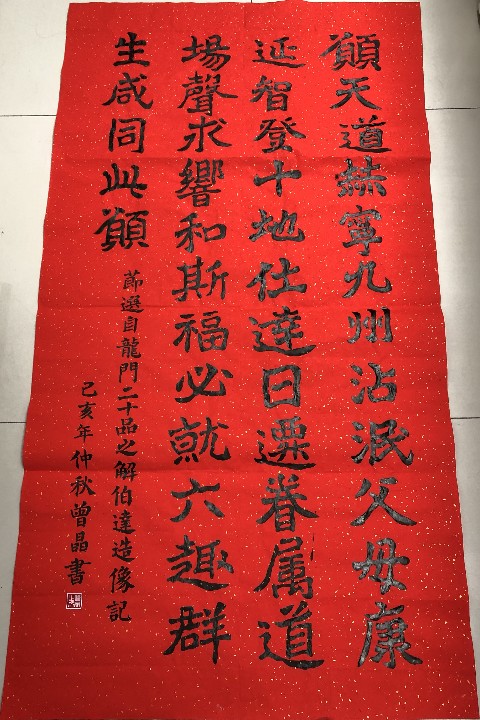 願天道赫寧九州沾泯父母康
延智登十地仕達日遷眷属道
場聲求響和斯福必就六趣群
生咸同此願
節選自龍門二十品之解伯達造像記
己亥年仲秋曾晶書